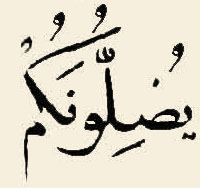 يُضِلُّونَكُمُ